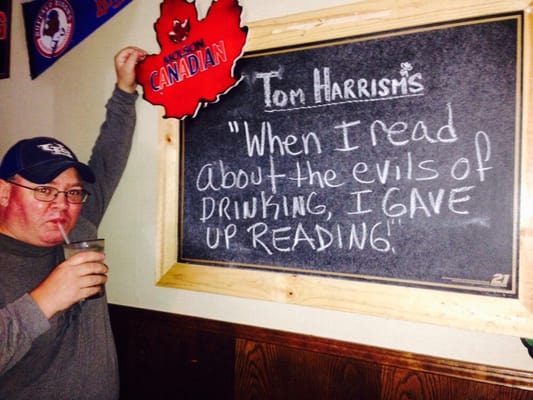 MOLSON
CANADIAN
TOM HARRISM'S
"When I read
about the evils of
DRINKING, I GAVE
UP READING."
21